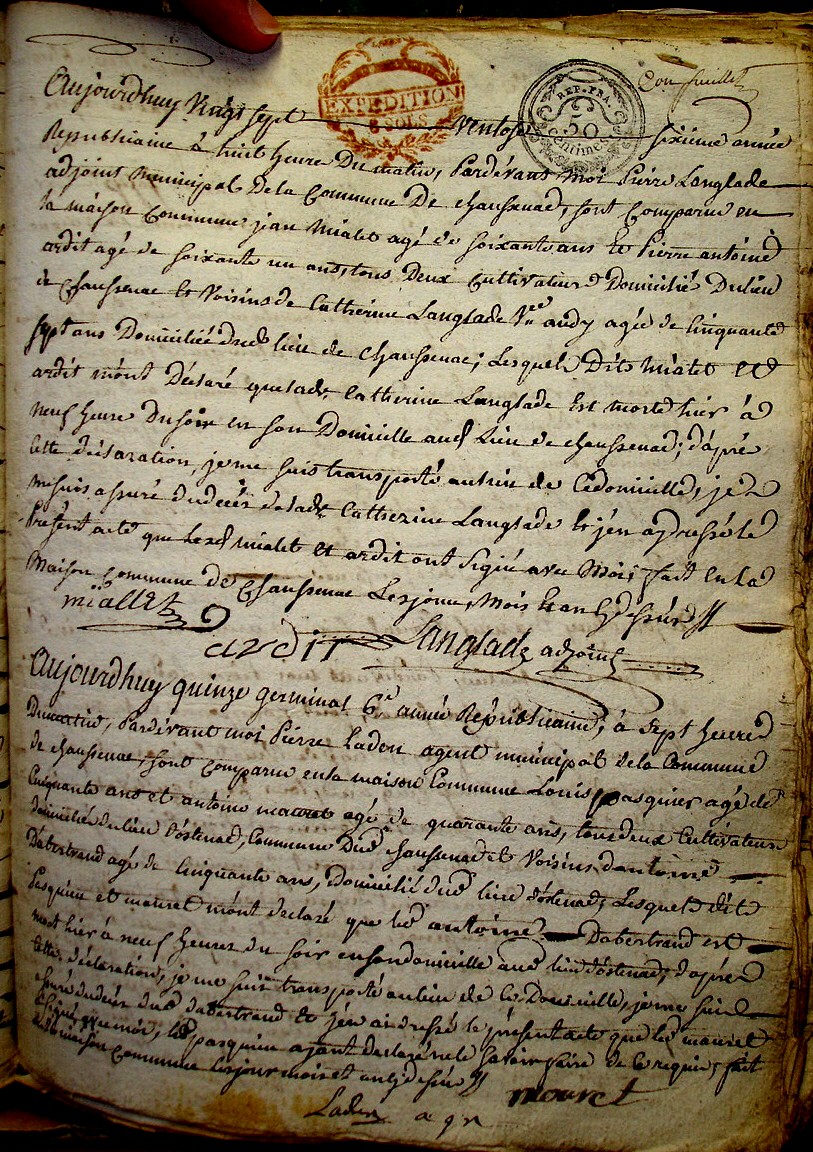 EXPEDITION
8 SOLS
REP. FRA.
50
Centimes
Aujourdhuy Vingt sept ventose sixième année
Republicaine à huit heure Du matin, Pardévant Moi Pierre Langlade
adjoint Municipal Dela Commune De chaussenac, sont Comparue en
la maison Commune jean Mialet agé de soixante ans Et Pierre antoine
ardit agé de soixante un ans, tous Deux Cultivateurs Domiciliés Dulieu
de chaussenac et Voisins de Catherine Langlade Vve audy agée de Cinquante
sept ans Domiciliée dud lieu de chaussenac; Lesquels Dits Mialet et
ardit m'ont Déclaré que lade Catherine Langlade Est morte hier à
neuf heure Du soir en son Domicille aud Lieu de chaussenac; d'après
Cette déclaration, je me suis transporté au lieu de Cedomicille, je
mesuis assuré du décés delade Catherine Langlade Et j'en ay dressé le
Présent acte que Lesd mialet et ardit ont signé avec Moi; fait En la
Maison Commune de Chaussenac Les jour, Mois Et an
miallet
ardit Langlade adjoint
Aujourdhuy quinze germinal 6e année Républicaine, à sept heures
Dumatin, Pardévant moi Pierre Laden agent municipal dela Commune
de chaussenac, sont Comparue enla maison Commune Louis pasquier agé de
Cinquante ans et antoine mauret agé de quarante ans, tous deux Cultivateurs
domiciliés dulieu d'ostenac, Commune Dud chaussenac et Voisins dantoine
Dabertrand agé de Cinquante ans, Domicilié dud lieu d'ostenac; Lesquels dits
Pasquier et mauret m'ont declaré que led antoine Dabertrand est
mort hier à neuf heures du soir ensondomicille aud lieu d'ostenac; d'après
Cette déclaration, je me suis transporté aulieu de ce Domicille, je me suis
assuré dudécés dud dabertrand et j'en ai dressé le présent acte que led mauret
a signé avec moi, led pasquier ayant declaré ne le savoir faire de ce requis; fait
enla maison Commune les jour mois et an
mouret
Laden agn